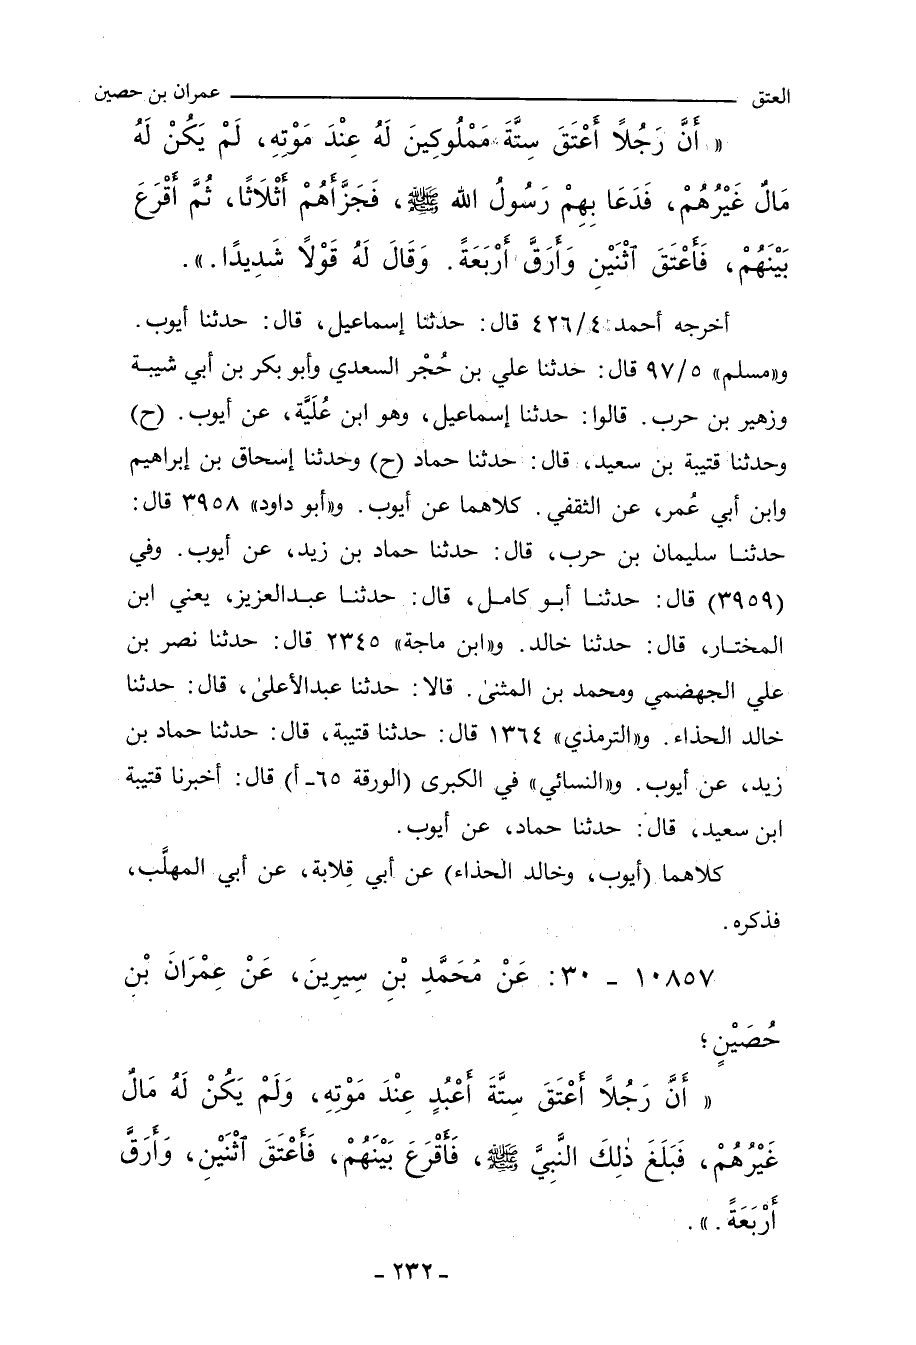 العتق عمران بن حصين
« أَنَّ رَجُلاً أَعْتَقَ سِتَّةَ مَمْلُوكِينَ لَهُ عِنْدَ مَوْتِهِ، لَمْ يَكُنْ لَهُ
مَالٌ غَيْرُهُمْ، فَدَعَا بِهِمْ رَسُولُ الله ﷺ، فَجَزَّأَهُمْ أَثْلَاثًا، ثُمَّ أَقْرَعَ
بَيْنَهُمْ، فَأَعْتَقَ ٱثْنَيْنِ وَأَرَقَّ أَرْبَعَةً. وَقَالَ لَهُ قَوْلاً شَدِيدًا.».
أخرجه أحمد ٤/٤٢٦ قال: حدثنا إسماعيل، قال: حدثنا أيوب.
و«مسلم» ٥/٩٧ قال: حدثنا علي بن حُجْر السعدي وأبو بكر بن أبي شيبة
وزهير بن حرب. قالوا: حدثنا إسماعيل، وهو ابن عُلَيَّة، عن أيوب. (ح)
وحدثنا قتيبة بن سعيد، قال: حدثنا حماد (ح) وحدثنا إسحاق بن إبراهيم
وابن أبي عُمر، عن الثقفي. كلاهما عن أيوب. و«أبو داود» ٣٩٥٨ قال:
حدثنا سليمان بن حرب، قال: حدثنا حماد بن زيد، عن أيوب. وفي
(٣٩٥٩) قال: حدثنا أبو كامل، قال: حدثنا عبدالعزيز، يعني ابن
المختار، قال: حدثنا خالد. و«ابن ماجة» ٢٣٤٥ قال: حدثنا نصر بن
علي الجهضمي ومحمد بن المثنىٰ. قالا: حدثنا عبدالأعلىٰ، قال: حدثنا
خالد الحذاء. و«الترمذي» ١٣٦٤ قال: حدثنا قتيبة، قال: حدثنا حماد بن
زيد، عن أيوب. و«النسائي» في الكبرى (الورقة ٦٥- أ) قال: أخبرنا قتيبة
ابن سعيد، قال: حدثنا حماد، عن أيوب.
كلاهما (أيوب، وخالد الحذاء) عن أبي قِلابة، عن أبي المهلَّب،
فذكره.
١٠٨٥٧ - ٣٠: عَنْ مُحَمَّدِ بْنِ سِيرِينَ، عَنْ عِمْرَانَ بْنِ
حُصَيْنٍ؛
« أَنَّ رَجُلاً أَعْتَقَ سِتَّةَ أَعْبُدٍ عِنْدَ مَوْتِهِ، وَلَمْ يَكُنْ لَهُ مَالٌ
غَيْرُهُمْ، فَبَلَغَ ذٰلِكَ النَّبِيَّ ﷺ، فَأَقْرَعَ بَيْنَهُمْ، فَأَعْتَقَ ٱثْنَيْنِ، وَأَرَقَّ
أَرْبَعَةً.».
- ٢٣٢ -